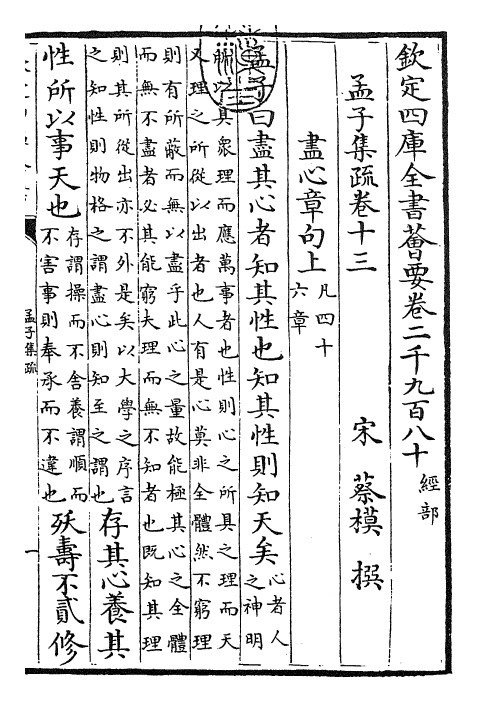 欽定四庫全書薈要卷二千九百八十 經部
孟子集疏卷十三 宋 蔡模 撰
盡心章句上 凡四十
六章
孟子曰盡其心者知其性也知其性則知天矣 心者人
之神明
所以具衆理而應萬事者也性則心之所具之理而天
又理之所從以出者也人有是心莫非全體然不窮理
則有所蔽而無以盡乎此心之量故能極其心之全體
而無不盡者必其能窮夫理而無不知者也既知其理
則其所從出亦不外是矣以大學之序言
之知性則物格之謂盡心則知至之謂也
存其心養其
性所以事天也 存謂操而不舍養謂順而
不害事則奉承而不違也
殀壽不貳修
孟子集疏
一